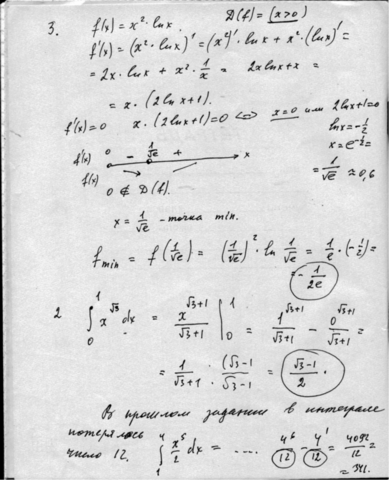 3. f(x) = x² · ln x. D(f) = (x>0)
f'(x) = (x² · ln x)' = (x²)' · ln x + x² · (ln x)' =
= 2x · ln x + x² · 1/x = 2x ln x + x =
= x · (2 ln x + 1).
f'(x) = 0 x · (2 ln x + 1) = 0 <=> x = 0 или 2 ln x + 1 = 0
ln x = -1/2
x = e^(-1/2) =
= 1/√e ≈ 0,6
f'(x) 0 - 1/√e + x
f(x)
0 ∉ D(f).
x = 1/√e - точка min.
f min = f(1/√e) = (1/√e)² · ln 1/√e = 1/e · (-1/2) =
= -1/2e
2 ∫₀¹ x^√3 dx = x^(√3+1)/(√3+1) |₀¹ = 1^(√3+1)/(√3+1) - 0^(√3+1)/(√3+1) =
= 1/(√3+1) · (√3-1)/(√3-1) = (√3-1)/2.
В прошлом задании в интеграле
потерялось
число 12. ∫₁⁴ x⁵/2 dx = .... 4⁶/12 - 1/12 = 4092/12 =
= 341.